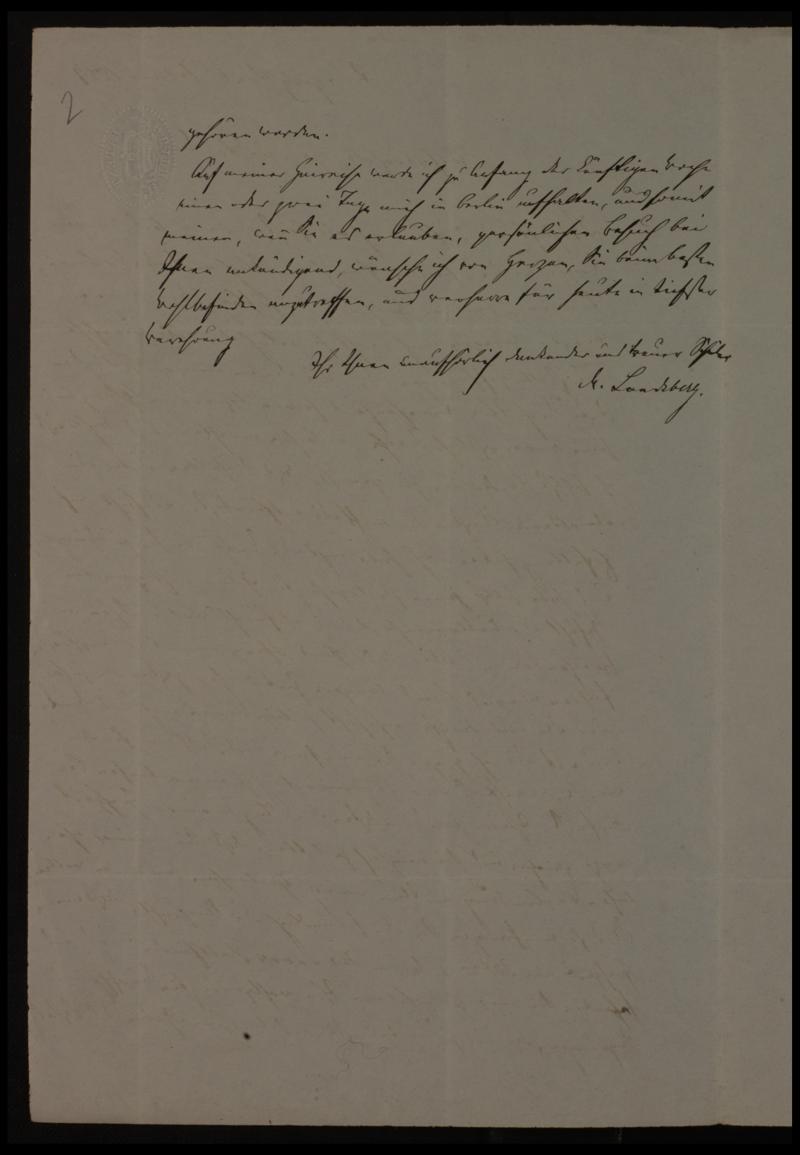 2
gehören werden.
Auf meiner Hinreise werde ich zu Anfang der künftigen Woche
einen oder zwei Tage mich in Berlin aufhalten, und somit
meinen, weñ Sie es erlauben, persönlichen Besuch bei
Ihnen ankündigend, wünsche ich von Herzen, Sie beim besten
Wohlbefinden anzutreffen, und verharre für heute in tiefster
Verehrung
Ihr Ihnen unaufhörlich dankender und treuer Schüler
M. Landsberg.